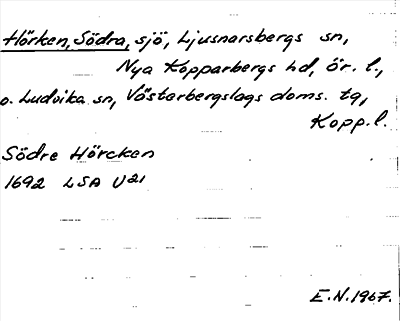 Hörken, Södra, sjö, Ljusnarsbergs sn,
Nya Kopparbergs hd, Ör. l.,
o. Ludvika sn, Västerbergslags doms. tg,
Kopp. l.
Södre Hörcken
1692 LSA U21
E.N. 1967.